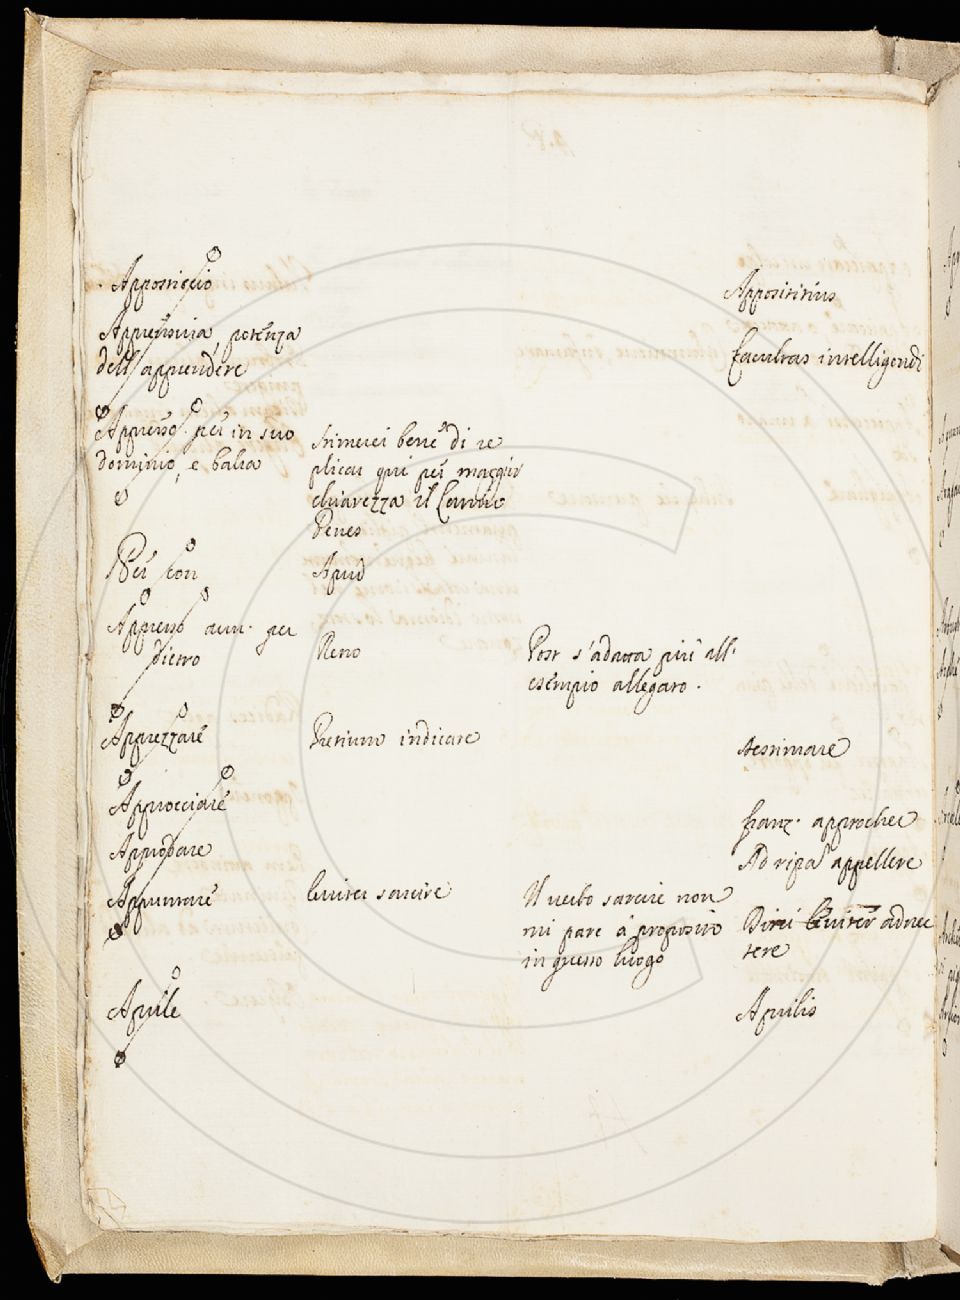 Apposticcio
Appositicius
Apprensiva, potenza
dell'apprendere
Facultas intelligendi
Appresso. per in suo
dominio, e balia
Stimerei bene di re
plicar qui per maggior
chiarezza il
Penes
Per con
Apud
Appresso avv. per
dietro
Pone
Post s'adatta più all'
esempio allegato.
Apprezzare
Pretium indicare
Aestimare
Approcciare
franz. approcher
Approdare
Ad ripam appellere
Appuntare
Leviter sarcire
Il verbo sarcire non
mi pare à proposito
in questo luogo
Direi leviter adnec
tere
Aprile
Aprilis